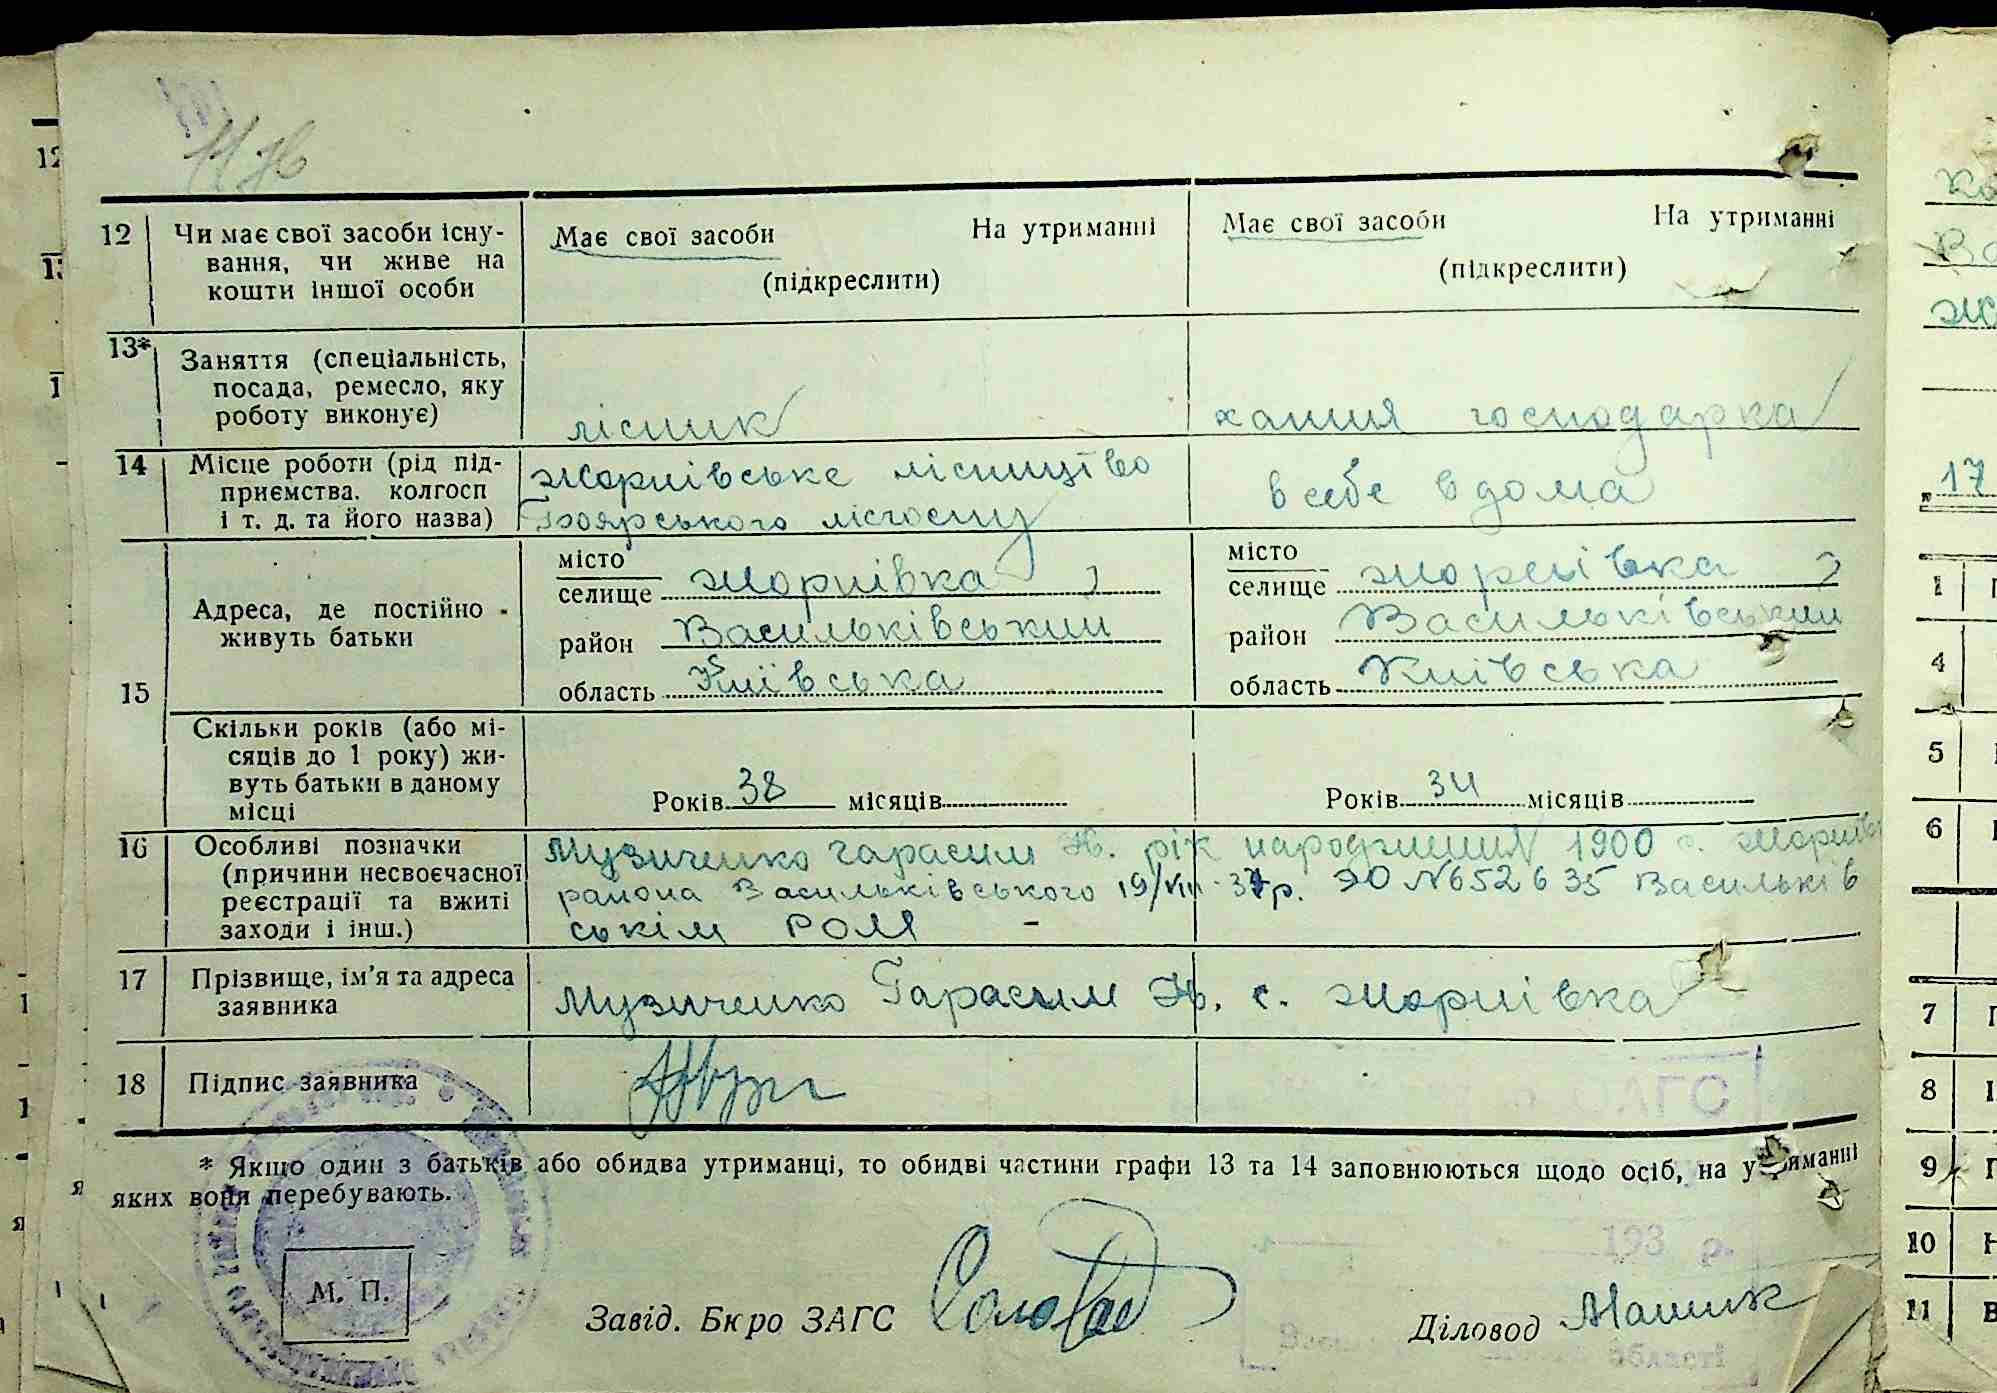 12 Чи має свої засоби існу-
вання, чи живе на
кошти іншої особи
Має свої засоби На утриманні
(підкреслити)
Має свої засоби На утриманні
(підкреслити)
13* Заняття (спеціальність,
посада, ремесло, яку
роботу виконує)
лісник
хатня господарка
14 Місце роботи (рід під-
приємства. колгосп
і т. д. та його назва)
Жорнівське лісництво
Боярського лісгоспу
в себе вдома
15 Адреса, де постійно
живуть батьки
місто
селище Жорнівка
район Васильківський
область Київська
місто
селище Жорнівка
район Васильківський
область Київська
Скільки років (або мі-
сяців до 1 року) жи-
вуть батьки в даному
місці
Років 38 місяців
Років 34 місяців
16 Особливі позначки
(причини несвоєчасної
реєстрації та вжиті
заходи і інш.)
Музиченко Гарасим Н. рік народження 1900 с. Жорнів
района Васильківського 19/VIII-37р. ЭО №652635 Васильків
ськім РОМ -
17 Прізвище, ім'я та адреса
заявника
Музиченко Гарасим Н. с. Жорнівка
18 Підпис заявника
* Якщо один з батьків або обидва утриманці, то обидві частини графи 13 та 14 заповнюються щодо осіб, на утриманні
яких вони перебувають.
М. П.
Завід. Бюро ЗАГС
Діловод Машик
ЗАГС
193 р.
області
17
1
4
5
6
7
8
9
10
11